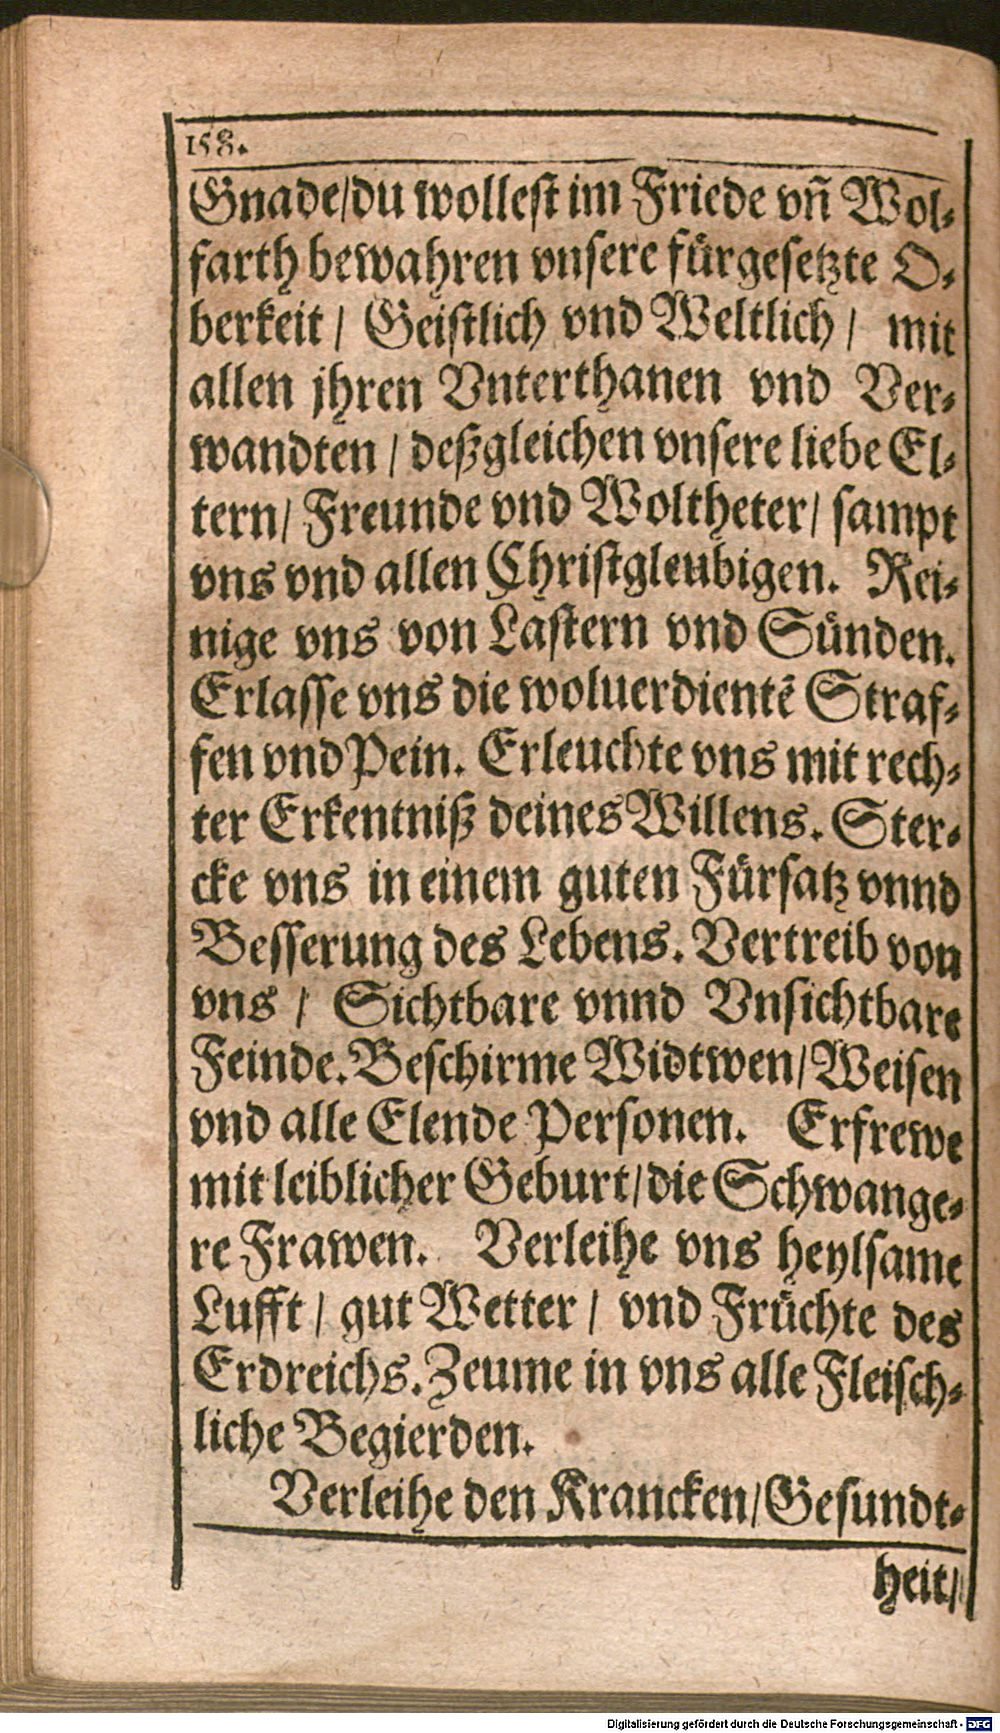 158.
Gnade/du wollest im Friede vn̄ Wol-
farth bewahren vnsere fürgesetzte O-
berkeit / Geistlich vnd Weltlich / mit
allen jhren Vnterthanen vnd Ver-
wandten / deßgleichen vnsere liebe El-
tern/ Freunde vnd Woltheter/ sampt
vns vnd allen Christgleubigen. Rei-
nige vns von Lastern vnd Sünden.
Erlasse vns die woluerdientē Straf-
fen vnd Pein. Erleuchte vns mit rech-
ter Erkentniß deines Willens. Ster-
cke vns in einem guten Fürsatz vnnd
Besserung des Lebens. Vertreib von
vns / Sichtbare vnnd Vnsichtbare
Feinde. Beschirme Widtwen/Weisen
vnd alle Elende Personen. Erfrewe
mit leiblicher Geburt/die Schwange-
re Frawen. Verleihe vns heylsame
Lufft / gut Wetter / vnd Früchte des
Erdreichs. Zeume in vns alle Fleisch-
liche Begierden.
Verleihe den Krancken/Gesundt-
heit/
Digitalisierung gefördert durch die Deutsche Forschungsgemeinschaft - DFG